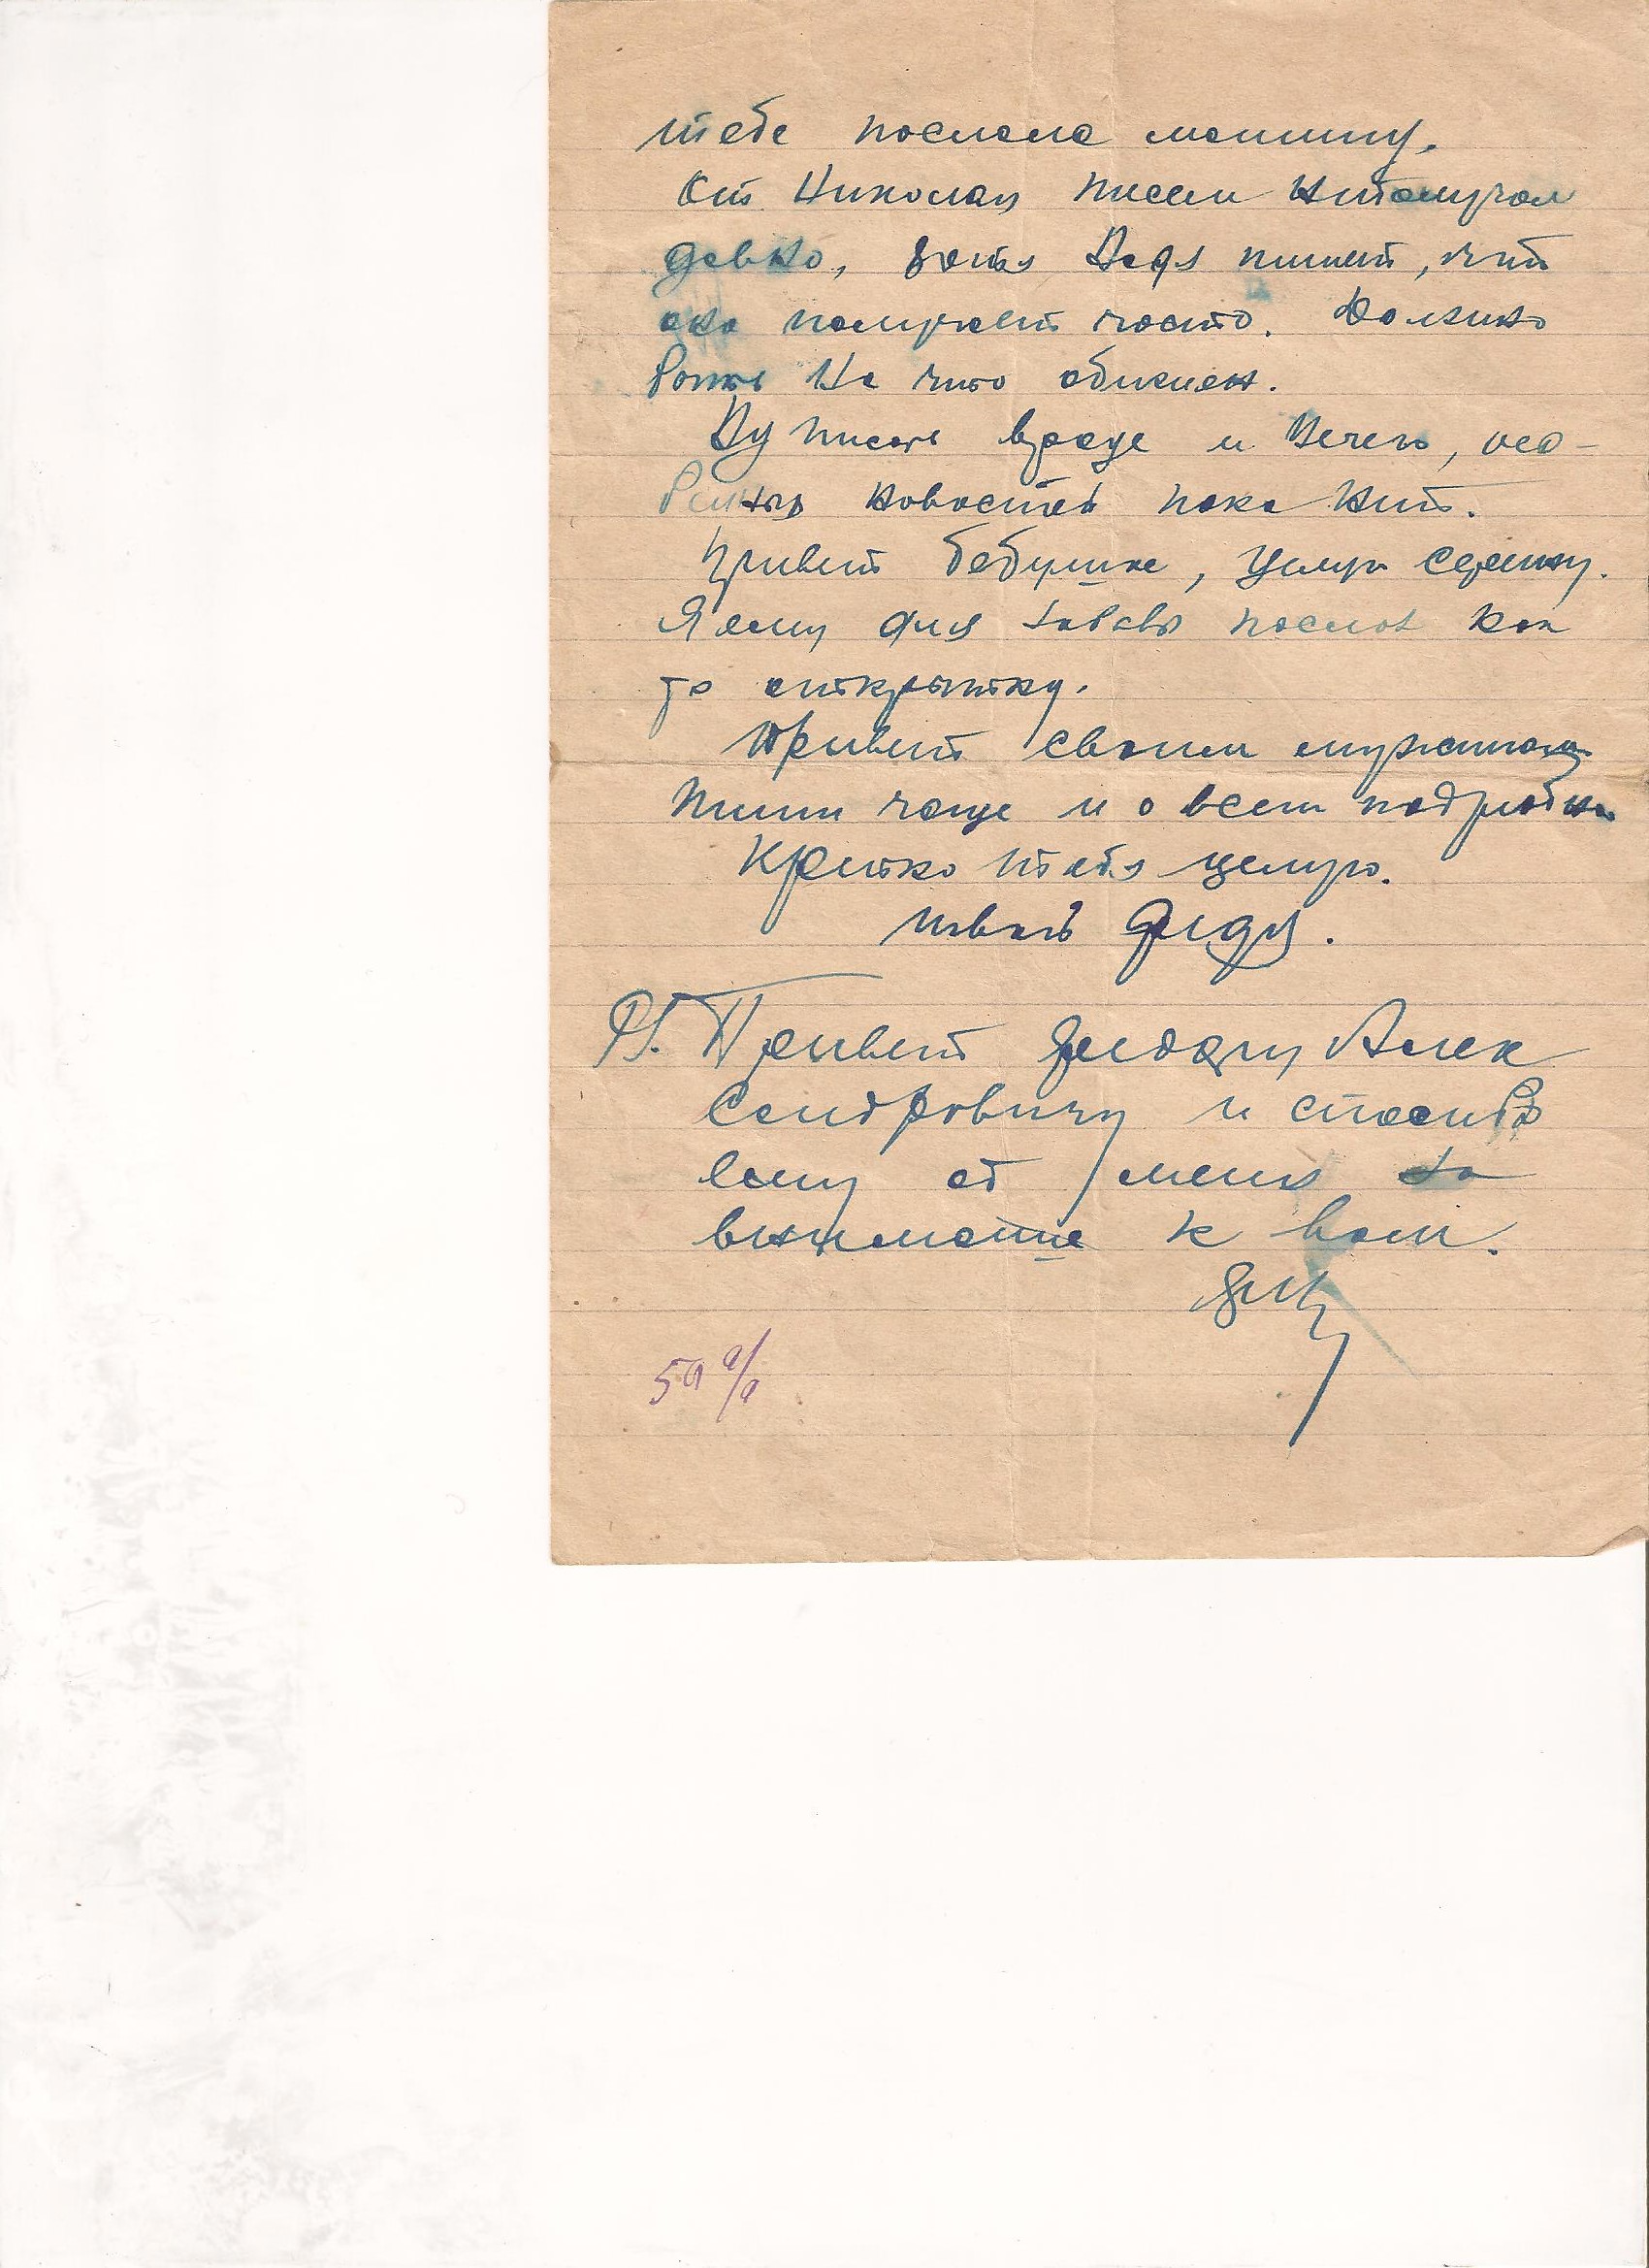 тебе послала машину.
От Николая писем не получал
давно, хотя Надя пишет, что
она получает часто. Должно
быть на что обижен.
Ну писать вроде и нечего, осо-
бенных новостей пока нет.
Привет бабушке, целую
Я ему для забавы послал как
то открытку.
Привет своим
Пиши чаще и о всем подробно
Крепко тебя целую.
твой Федя.
PS. Привет Федору Алек
сандровичу и спасибо
ему от меня за
внимание к вам.